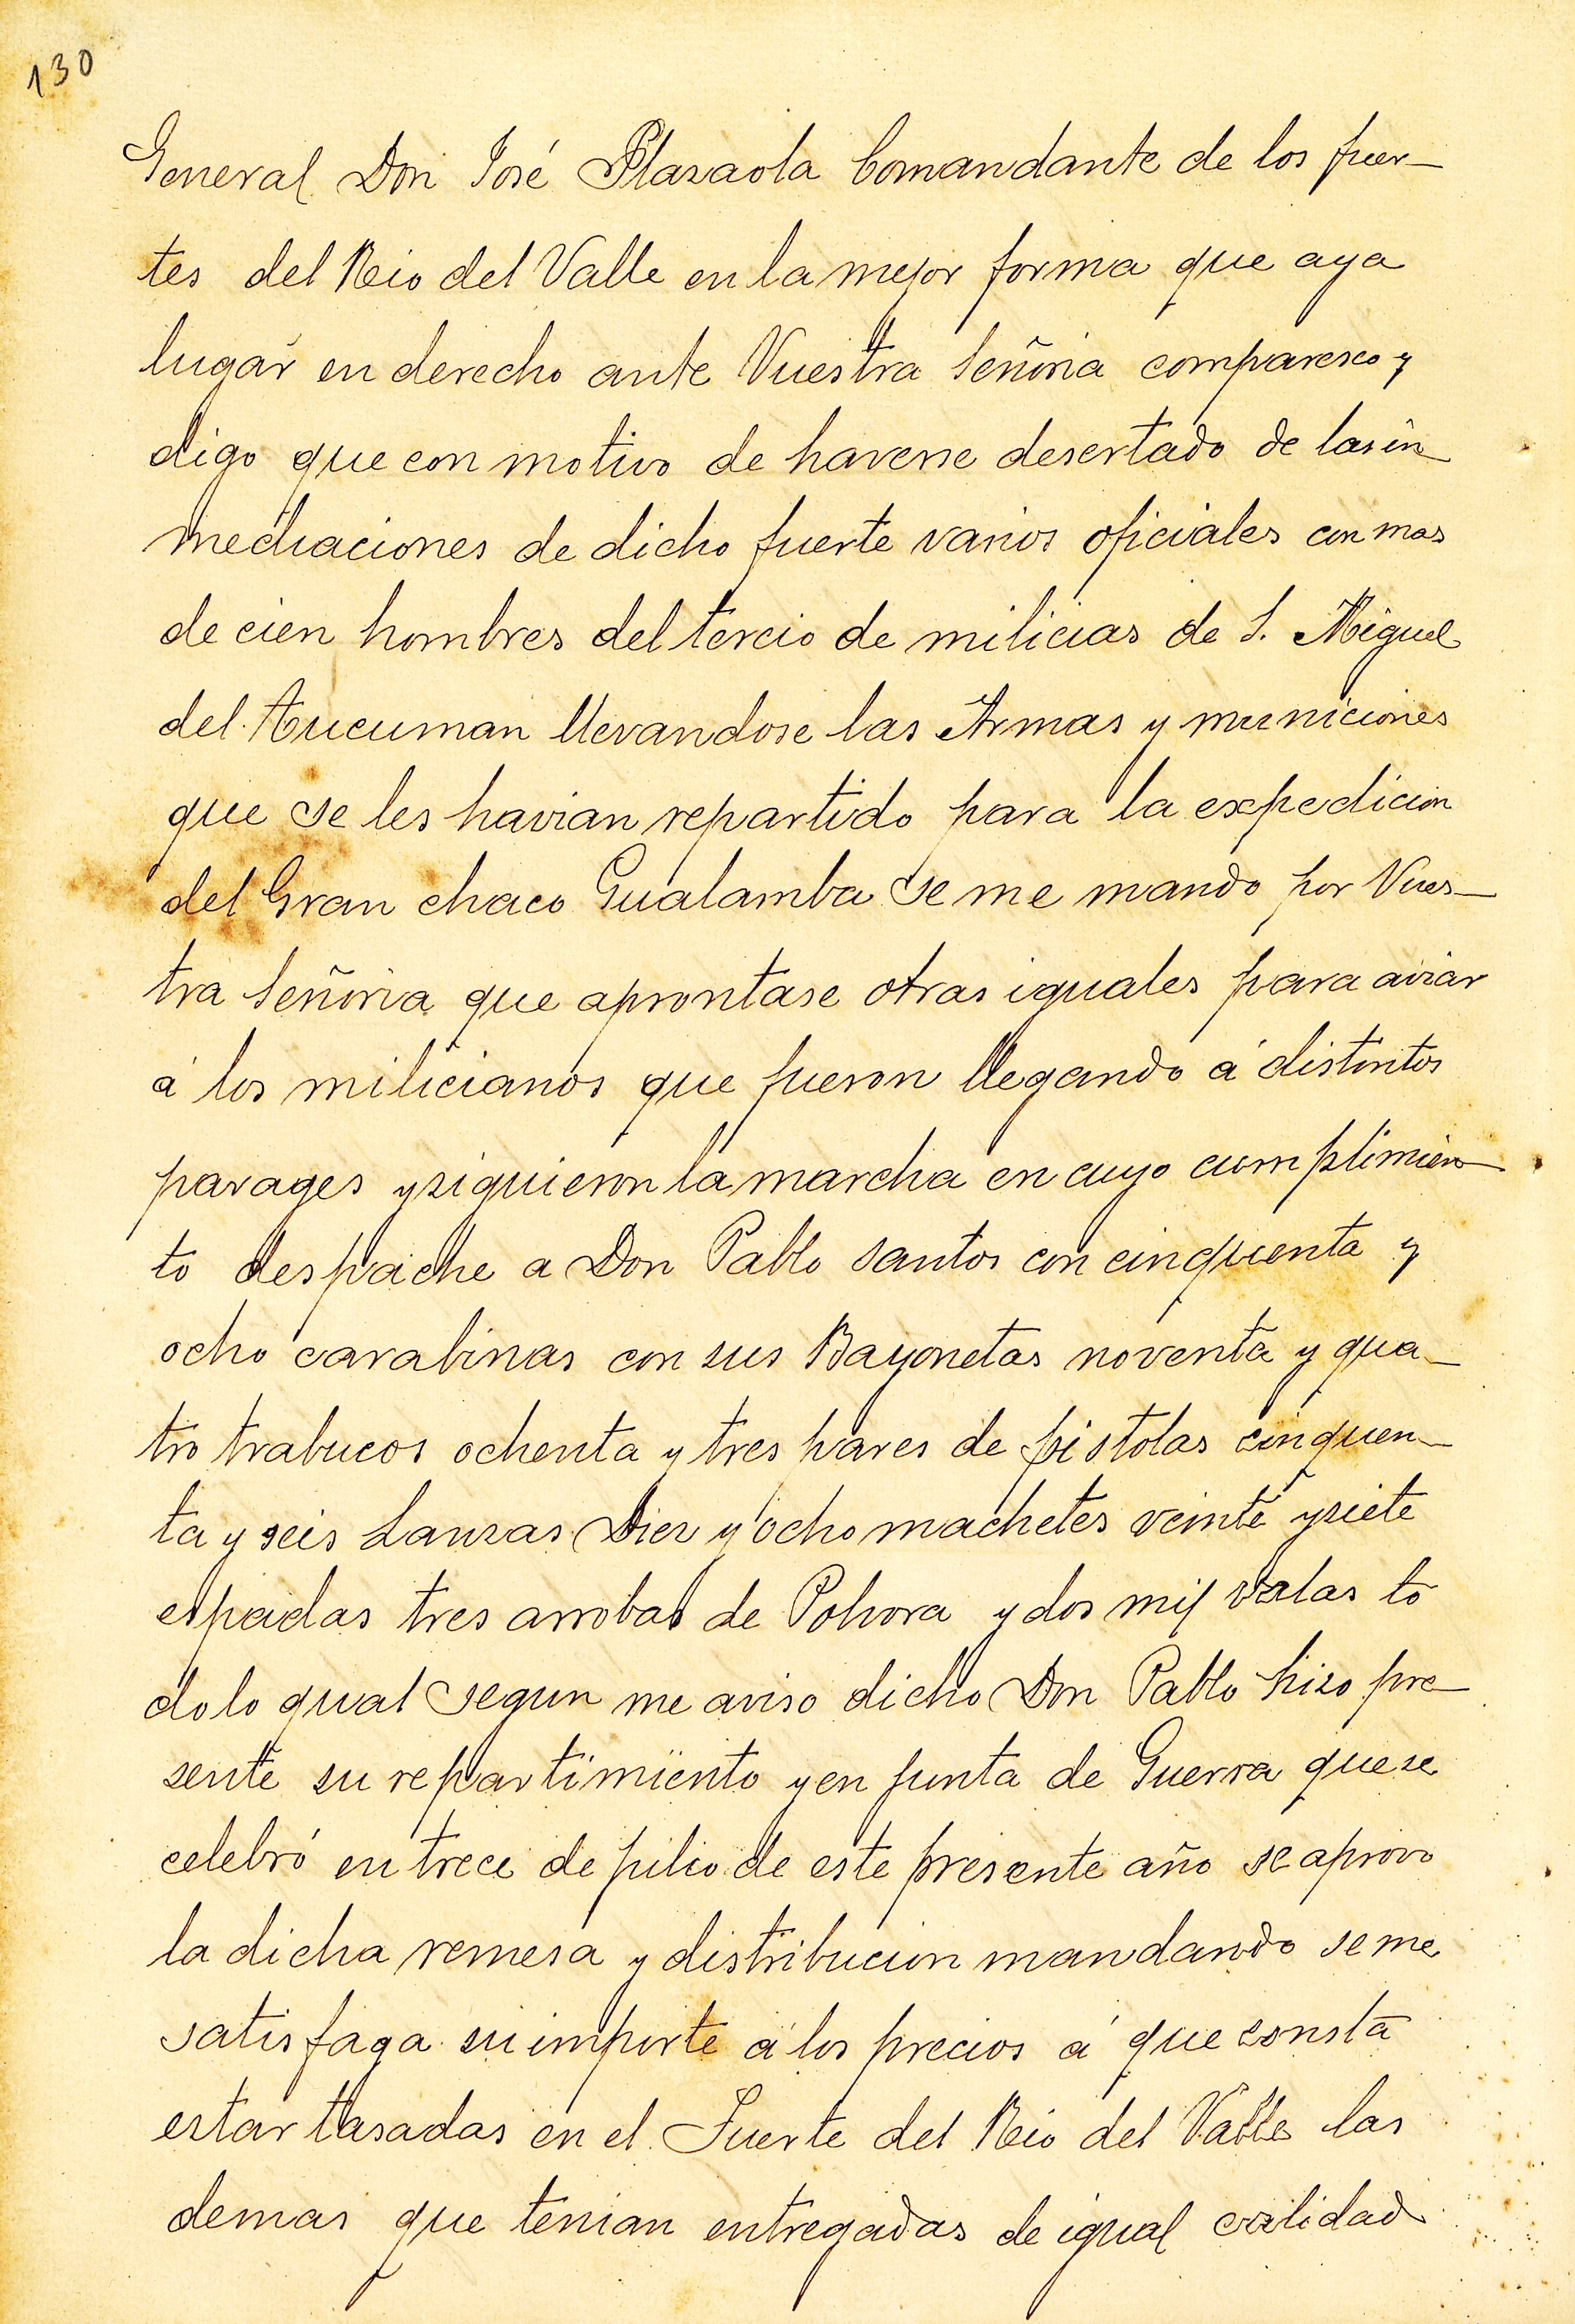 130
General Don José Plazaola Comandante de los fuer-
tes del Rio del Valle en la mejor forma que aya
lugar en derecho ante Vuestra Señoria comparesco y
digo que con motivo de haverse desertado de las in-
mediaciones de dicho fuerte varios oficiales con mas
de cien hombres del tercio de milicias de S. Miguel
del Tucuman llevandose las Armas y municiones
que se les havian repartido para la expedicion
del Gran chaco Gualamba se me mando por Vues-
tra Señoria que aprontase otras iguales para aviar
á los milicianos que fueron llegando á distintos
parages y siguieron la marcha en cuyo cumplimien-
to despache a Don Pablo santos con cinquenta y
ocho carabinas con sus Bayonetas noventa y qua-
tro trabucos ochenta y tres pares de pistolas cinquen-
ta y seis Lanzas Diez y ocho machetes veinte y siete
espadas tres arrobas de Polvora y dos mil valas to
do lo qual segun me aviso dicho Don Pablo hizo pre-
sente su repartimiento y en junta de Guerra que se
celebró en trece de julio de este presente año se aprovo
la dicha remesa y distribucion mandando se me
satisfaga su importe á los precios á que consta
estar tasadas en el Fuerte del Rio del Valle las
demas que tenian entregadas de igual calidad